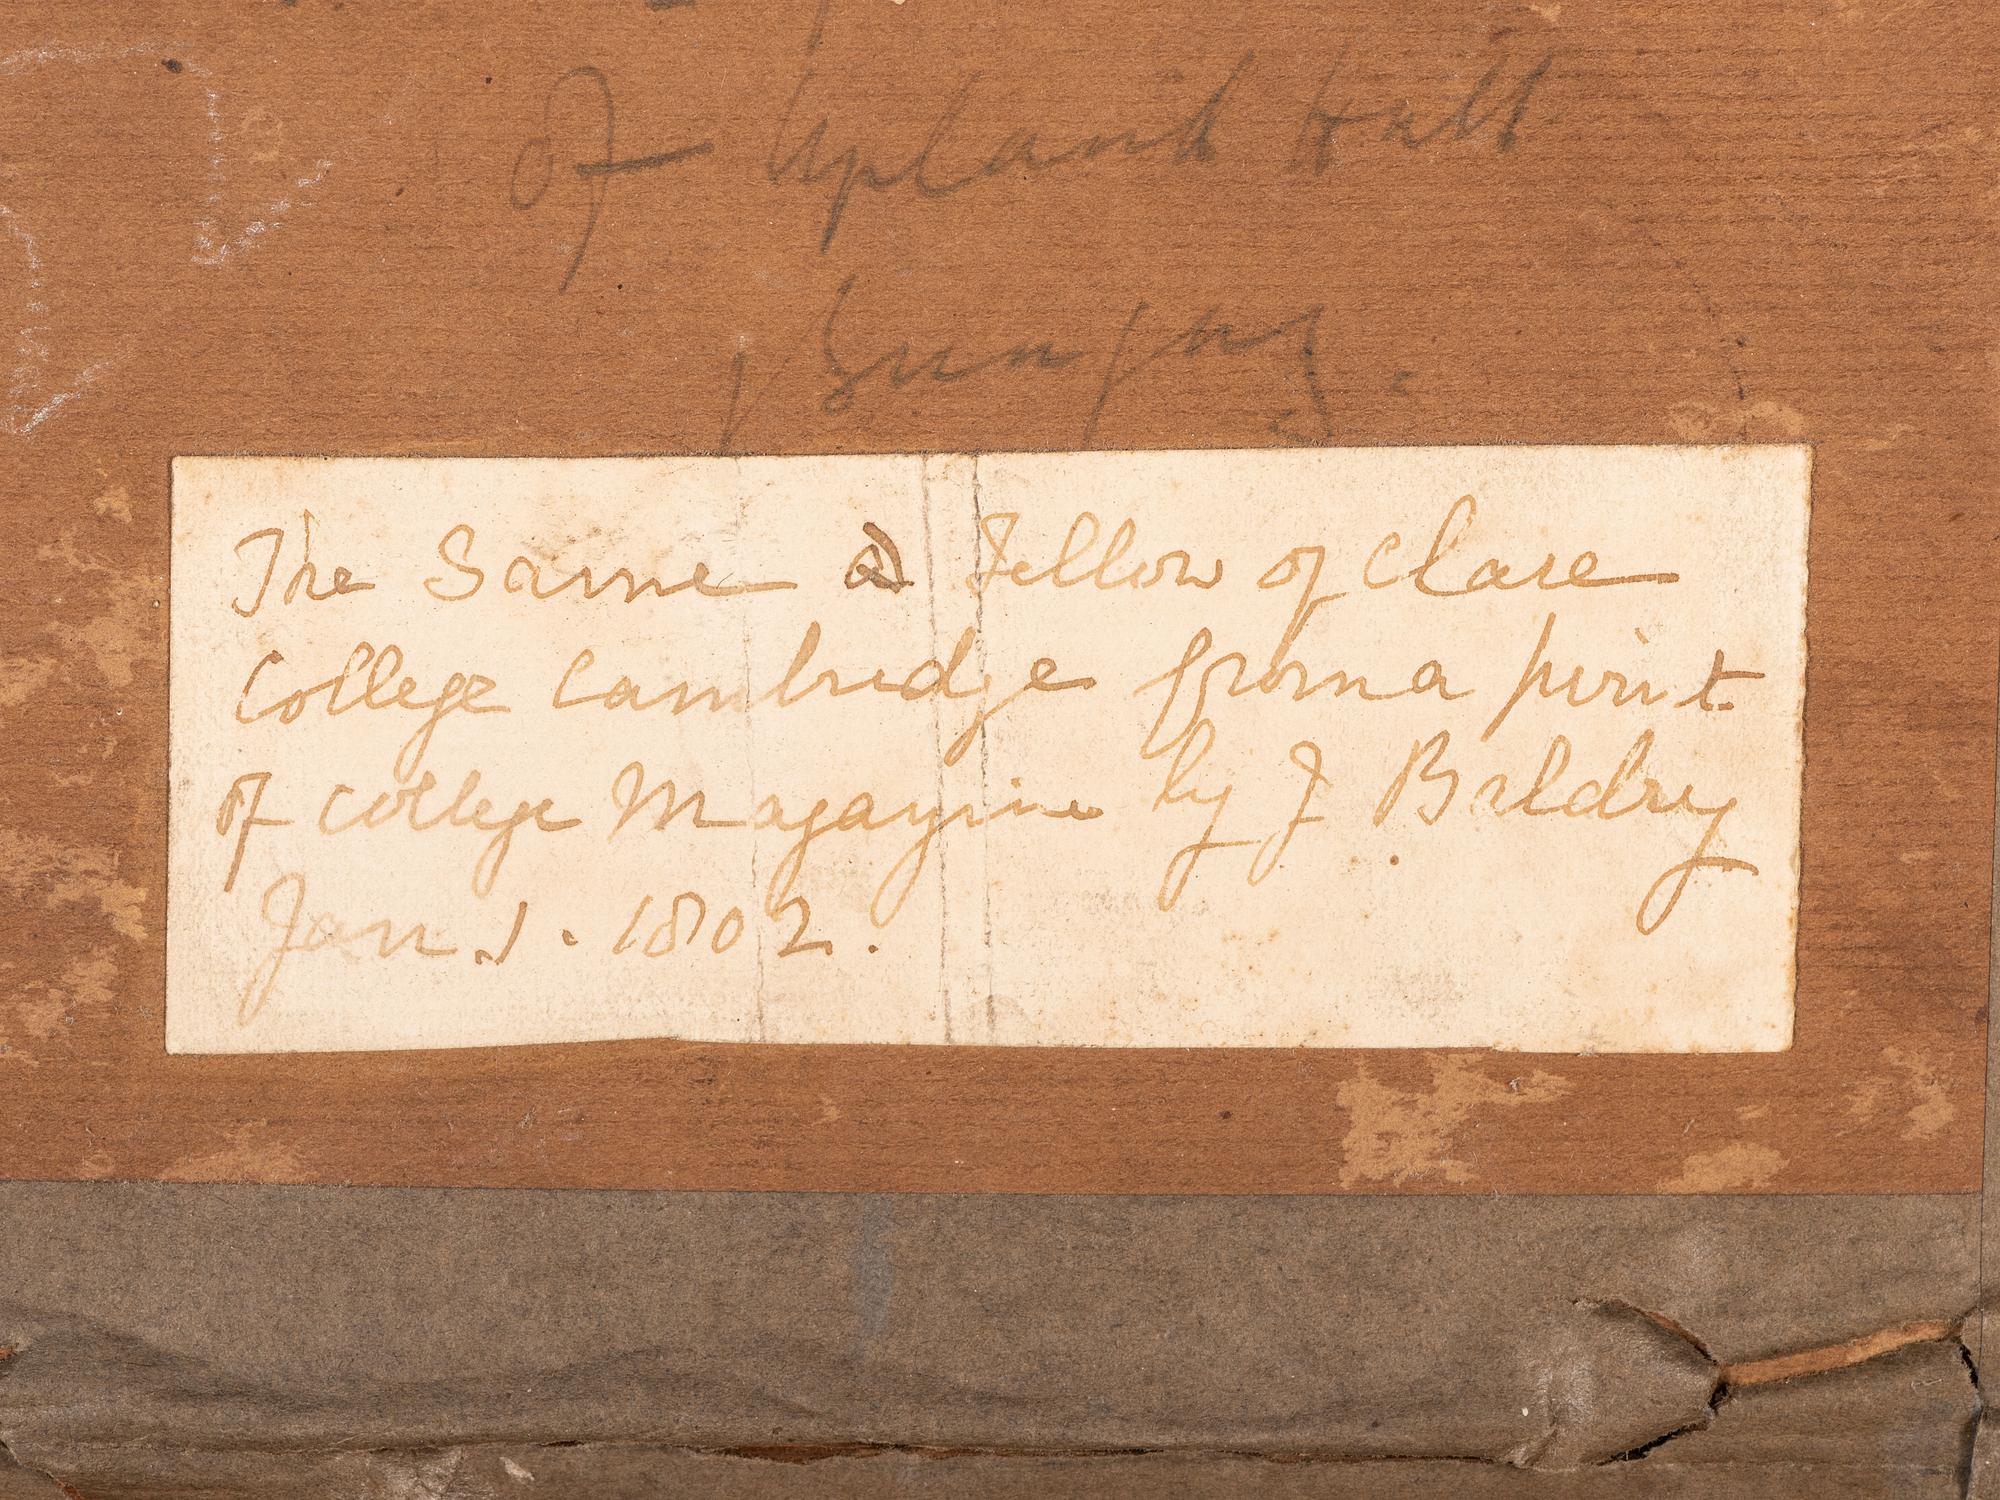 of Upland Hall
Bungay.
The Same a Fellow of Clare
College Cambridge from a print
of College Magazine by J Baldry
Jan 1. 1802.